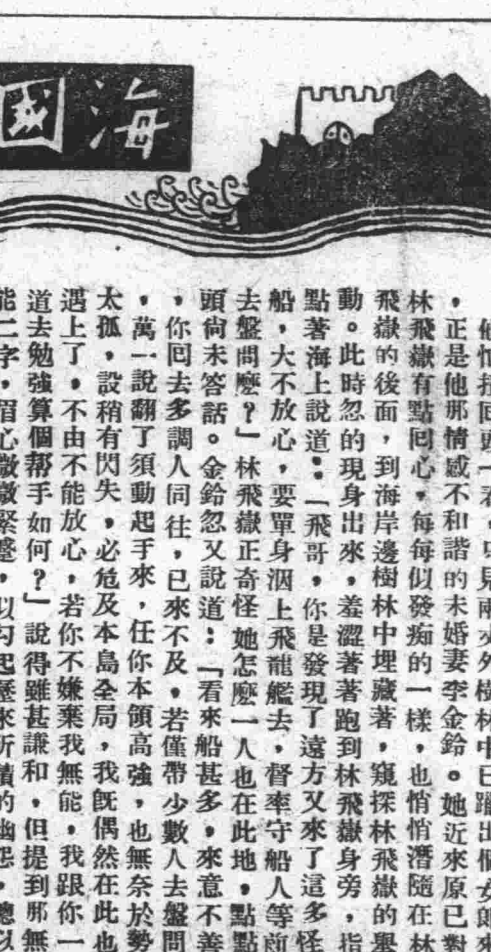 海國
他忙扭回頭一看,只見兩丈外樹林中已躍出個女郎
,正是他那情感不和諧的未婚妻李金鈴。她近來原已對
林飛嶽有點回心,每每似發痴的一樣,也悄悄潛隨在林
飛嶽的後面,到海岸邊樹林中埋藏著,窺探林飛嶽的舉
動。此時忽的現身出來,羞澀著著跑到林飛嶽身旁,指
點著海上說道:「飛哥,你是發現了遠方又來了這多怪
船,大不放心,要單身泅上飛龍艦去,督率守船人等前
去盤問麼?」林飛嶽正奇怪她怎麼一人也在此地,點點
頭尙未答話。金鈴忽又說道:「看來船甚多,來意不善
,你回去多調人同往,已來不及,若僅帶少數人去盤問
,萬一說翻了須動起手來,任你本領高強,也無奈於勢
太孤,設稍有閃失,必危及本島全局,我旣偶然在此也
遇上了,不由不能放心,若你不嫌棄我無能,我跟你一
道去勉強算個幫手如何?」說得雖甚謙和,但提到那無
能二字,眉心微微緊蹙,以勾起歷來所積的幽怨,總以